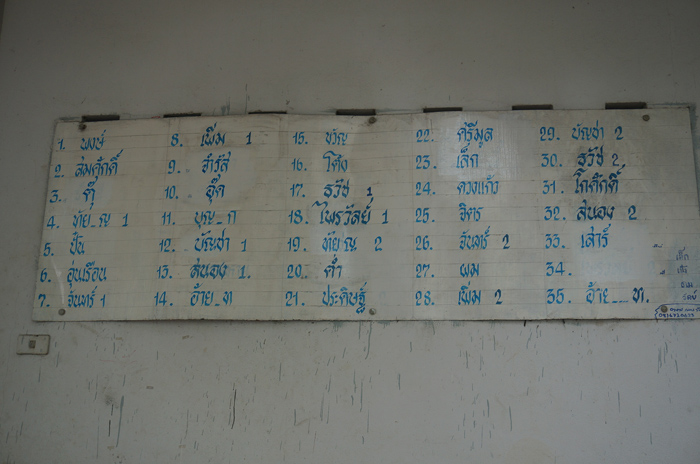 1. พงษ์
2. สมศักดิ์
3. ตุ๊
4. ทัย_ญ 1
5. ปั่น
6. อุ่นเรือน
7. จันทร์ 1
8. เพิ่ม 1
9. จำรัส
10. อู๊ด
11. บุญ_ก
12. บัญชา 1
13. สนอง 1.
14. อ้าย_ท
15. ขวัญ
16. โต้ง
17. ธวัช 1
18. ไพรวัลย์ 1
19. ทัย ญ. 2
20. ดำ
21. ประดิษฐ์
22. ศรีมูล
23. เล็ก
24. ดวงแก้ว
25. จิตร
26. จันทร์ 2
27. ผม
28. เพิ่ม 2
29. บัญชา 2
30. ธวัช 2.
31. โกศักดิ์
32. สนอง 2
33. เสาร์
34.
35. อ้าย__ท.